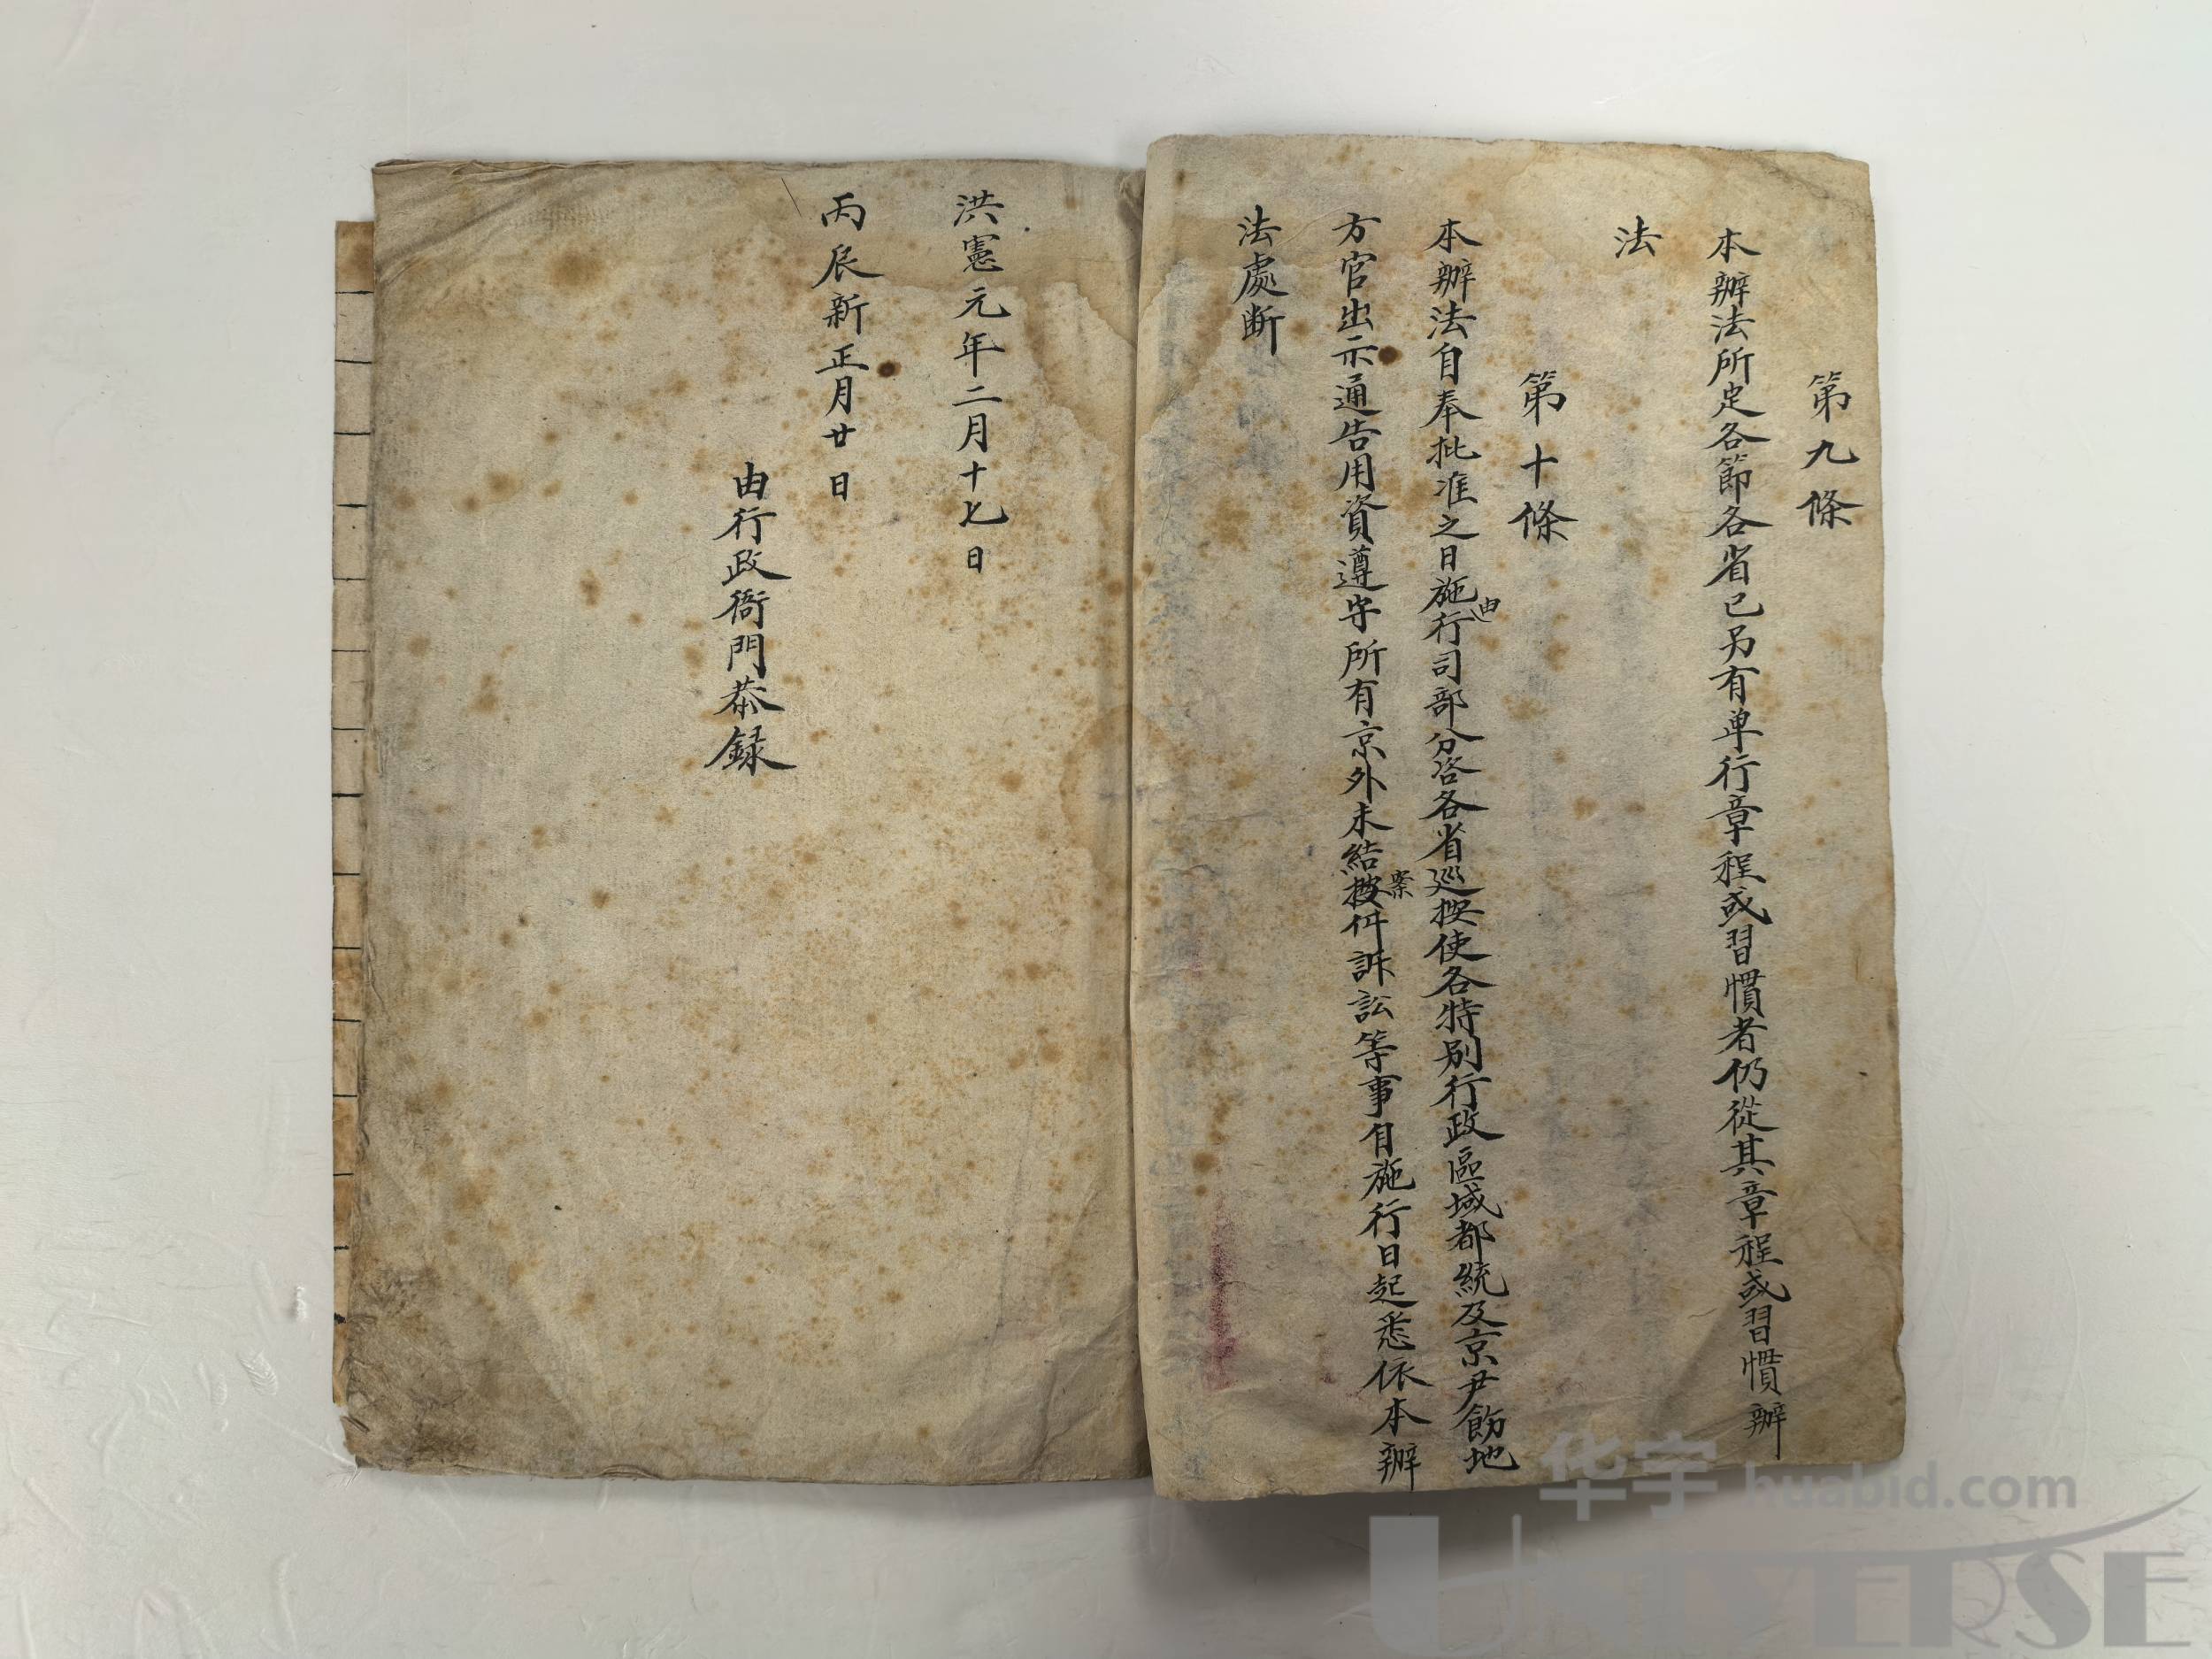 第九條
本辦法所定各節各省已另有单行章程或習慣者仍從其章程或習慣辦
法
第十條
本辦法自奉批准之日施行由司部分咨各省巡按使各特别行政區域都統及京尹飭地
方官出示通告用資遵守所有京外未結案件訴訟等事自施行日起悉依本辦
法處断
洪憲元年二月十七日
丙辰新正月廿日
由行政衙門恭録
华宇 huabid.com
UNIVERSE